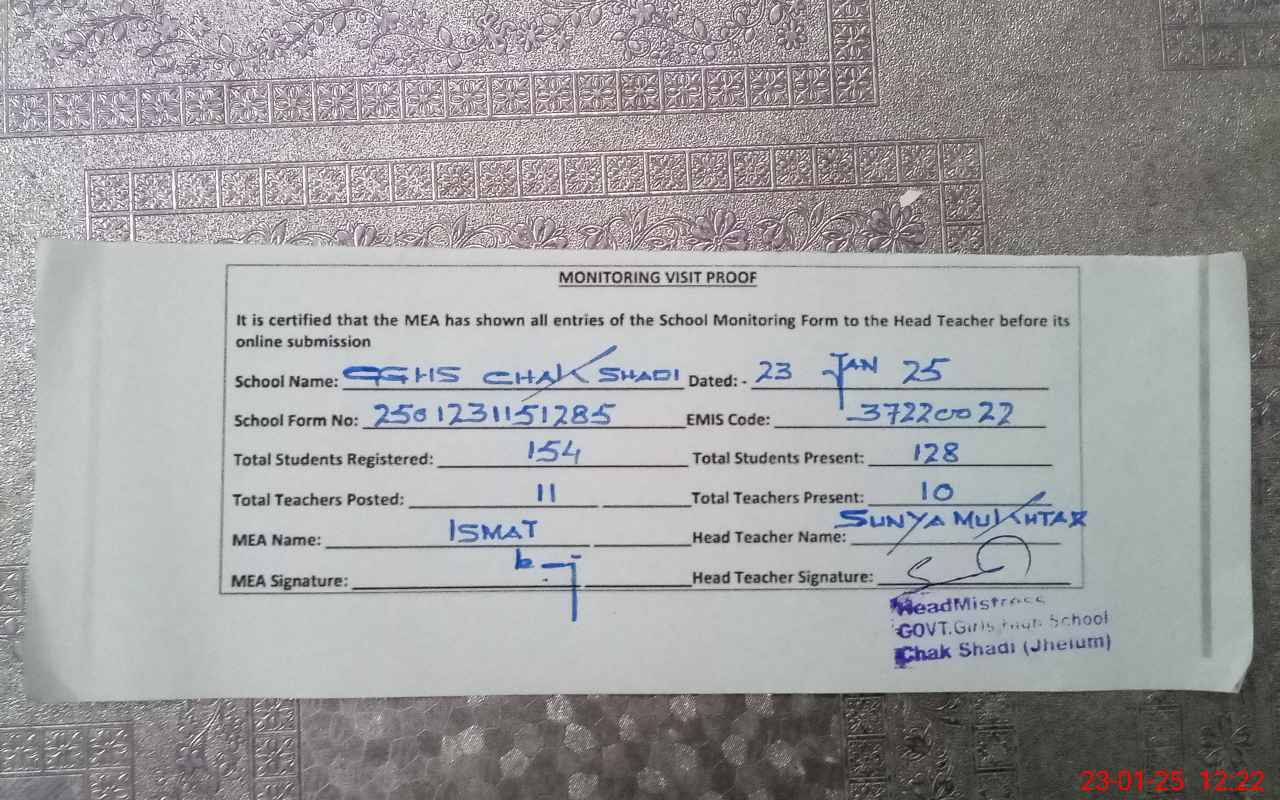 MONITORING VISIT PROOF
It is certified that the MEA has shown all entries of the School Monitoring Form to the Head Teacher before its
online submission
School Name: GGHS CHAK SHADI Dated: - 23 JAN 25
School Form No: 2501231151285 EMIS Code: 37220022
Total Students Registered: 154 Total Students Present: 128
Total Teachers Posted: 11 Total Teachers Present: 10
MEA Name: ISMAT Head Teacher Name: SUNYA MUKHTAR
MEA Signature: Head Teacher Signature:
HeadMistress
GOVT.Girls High School
Chak Shadi (Jhelum)
23-01-25 12:22